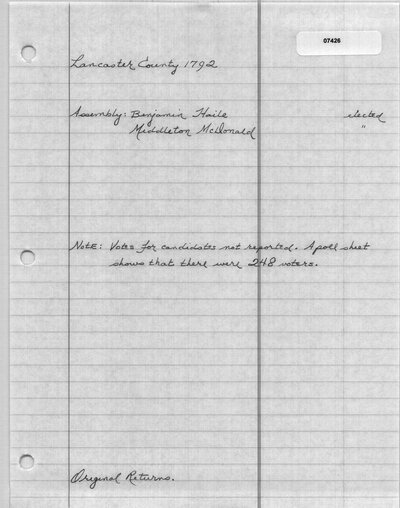 07426
Lancaster County 1792
Assembly: Benjamin Haile elected
Middleton McDonald "
Note: Votes for candidates not reported. A poll sheet
shows that there were 248 voters.
Original Returns.